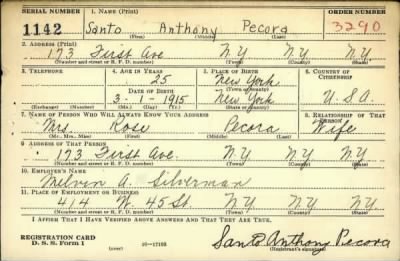 SERIAL NUMBER 1. NAME (Print) ORDER NUMBER
1142 Santo Anthony Pecora 3290
(First) (Middle) (Last)
2. ADDRESS (Print)
173 First Ave N.Y. N.Y. N.Y.
(Number and street or R. F. D. number) (Town) (County) (State)
3. TELEPHONE 4. AGE IN YEARS 5. PLACE OF BIRTH 6. COUNTRY OF CITIZENSHIP
25 New York
DATE OF BIRTH (Town or county)
3-1-1915 New York U.S.A.
(Exchange) (Number) (Mo.) (Day) (Yr.) (State or country)
7. NAME OF PERSON WHO WILL ALWAYS KNOW YOUR ADDRESS 8. RELATIONSHIP OF THAT PERSON
Mrs. Rose Pecora Wife
(Mr., Mrs., Miss) (First) (Middle) (Last)
9. ADDRESS OF THAT PERSON
173 First Ave. N.Y. N.Y. N.Y.
(Number and street or R. F. D. number) (Town) (County) (State)
10. EMPLOYER'S NAME
Melvin A. Silverman
11. PLACE OF EMPLOYMENT OR BUSINESS
414 W. 45 St. N.Y. N.Y. N.Y.
(Number and street or R. F. D. number) (Town) (County) (State)
I AFFIRM THAT I HAVE VERIFIED ABOVE ANSWERS AND THAT THEY ARE TRUE.
REGISTRATION CARD
D. S. S. Form 1 16—17105 Santo Anthony Pecora
(Registrant's signature)